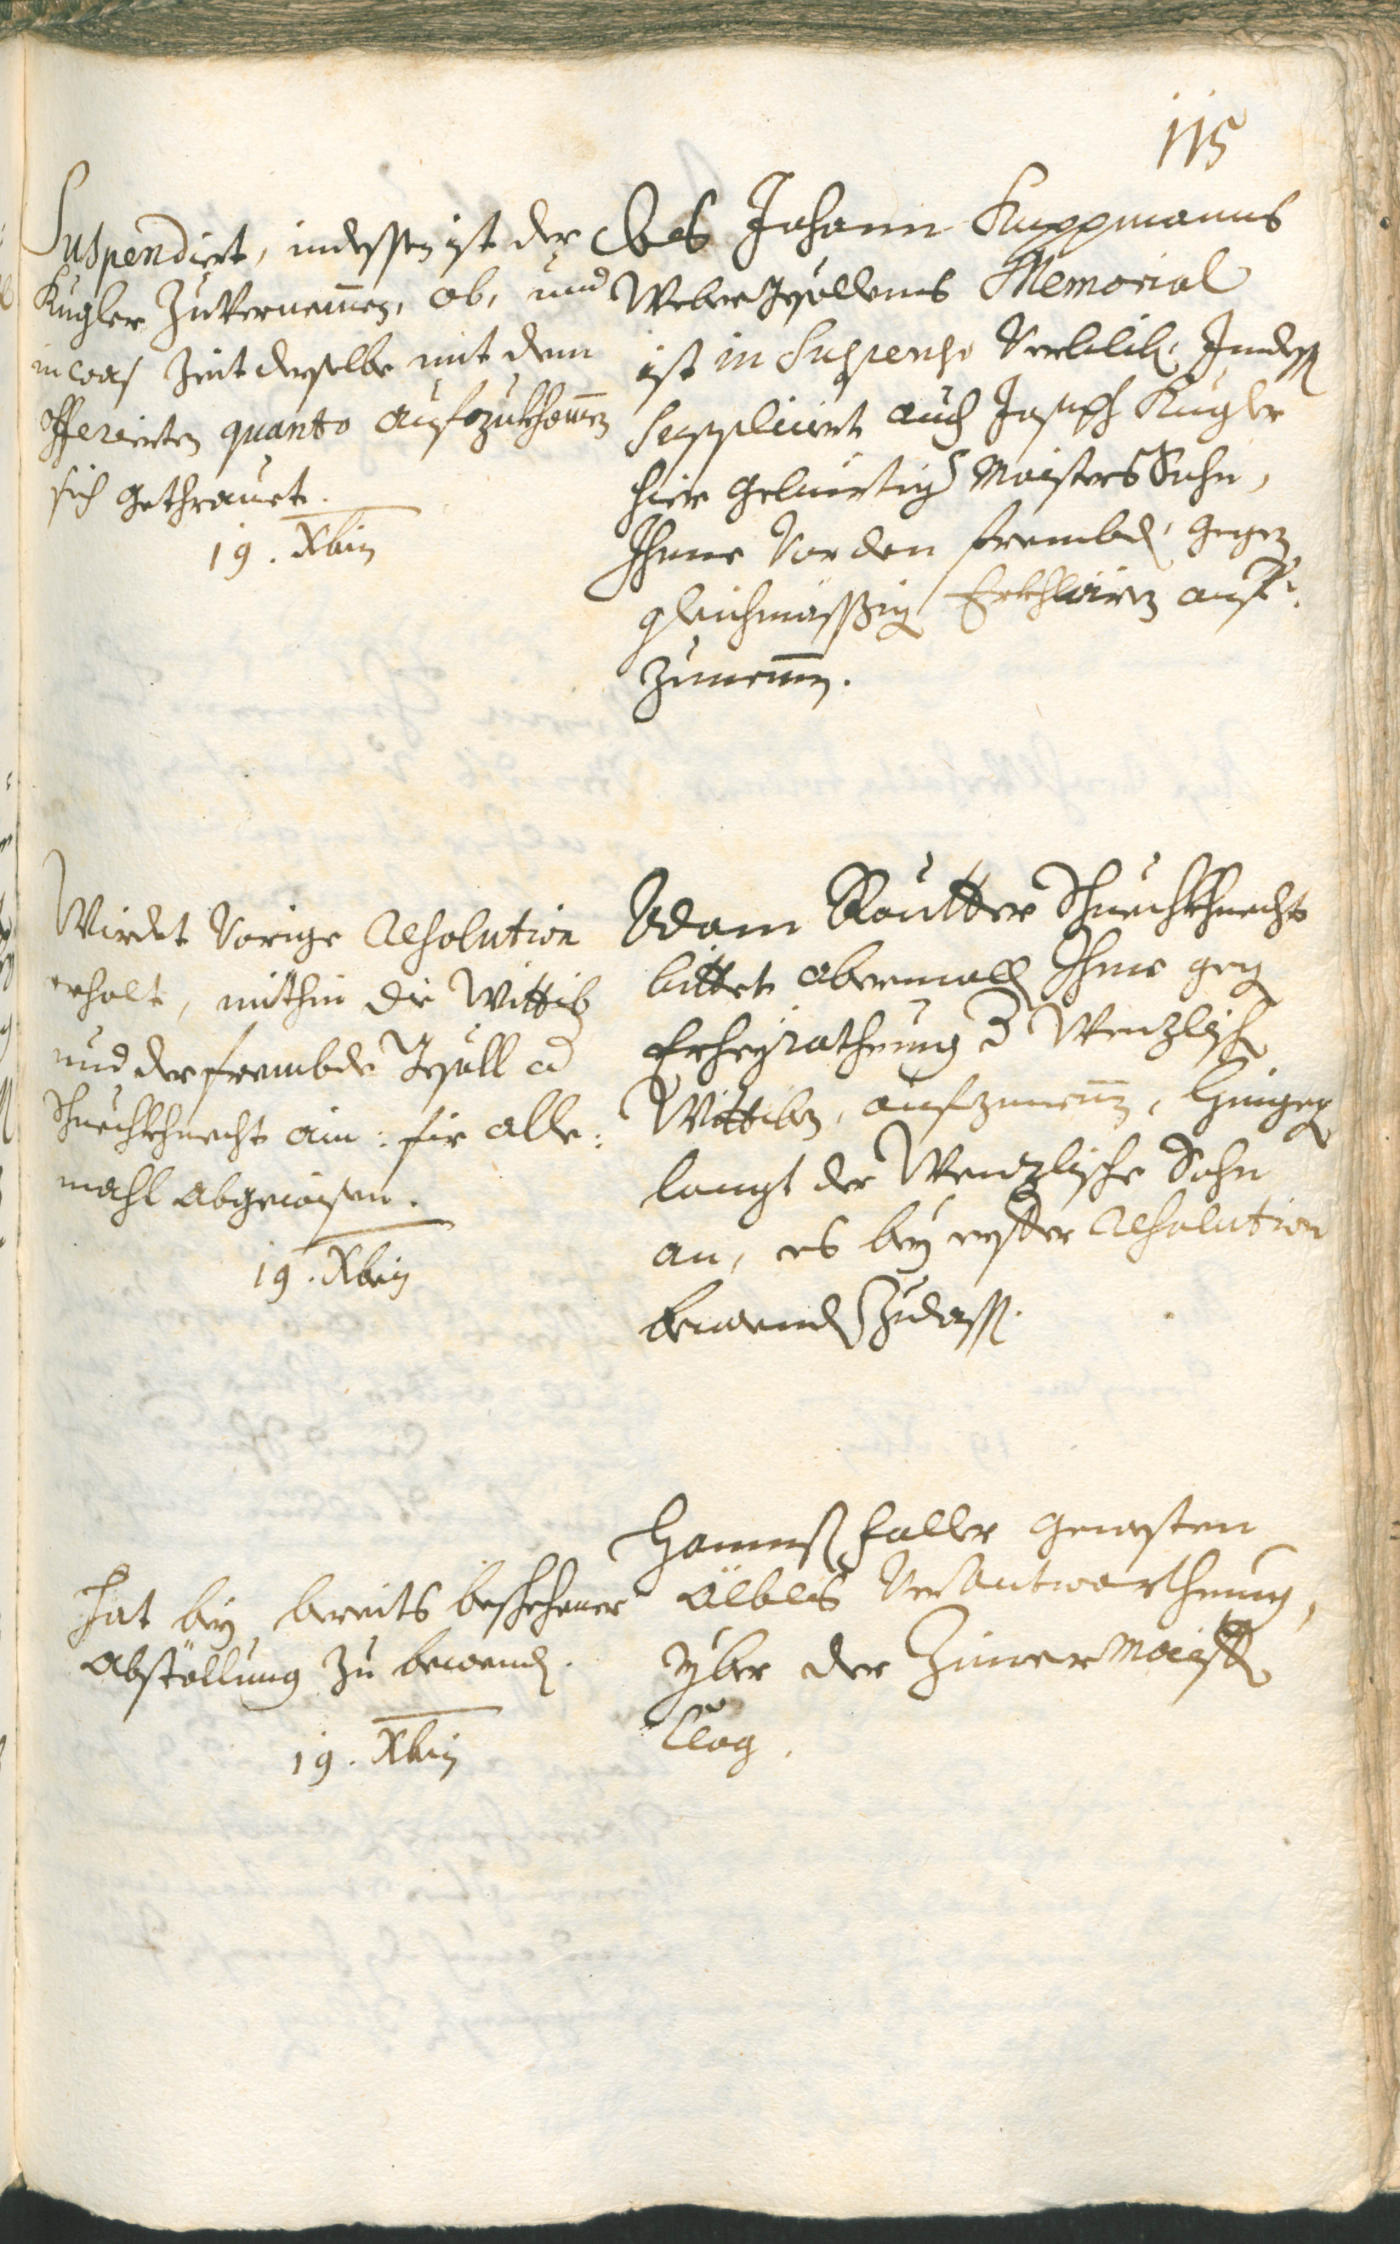 115
Suspendirt, indessen ist der
Kugler zuvernemmen, ob, und
in was Zeit derselbe mit dem
offerierten quanto aufzukhommen
sich gethrauet.
19. Xbris
Des Johann Kuppmanns
Webergesöllens Memorial
ist in Suspenso verblib. Indess
supplicirt auch Joseph Kugler
hier gebürtig Maisters Sohn,
Ihme vor den frembd. gegen
gleichmässig Erkhlären auf-
zunemmen.
Wirdet vorige Resolution
erholt, mithin die Wittib
und der frembde Gesöll ad
Schuechkhnecht ain: für alle:
mahl abgewisen.
19. Xbris
Adam Rautter Schuechkhnecht
bittet abermall Ihme geg
Erheyrathung d Wenzlisch
Wittiben, aufzunemmen, Hingegen
langt der Wenzlische Sohn
an, es bey erster Resolution
bewend zulass.
Hat bey bereits beschehener
Abstöllung zu bewend.
19. Xbris
Hannß Faller gewesten
Verantworthung,
yber der Zimermaister
Clag.